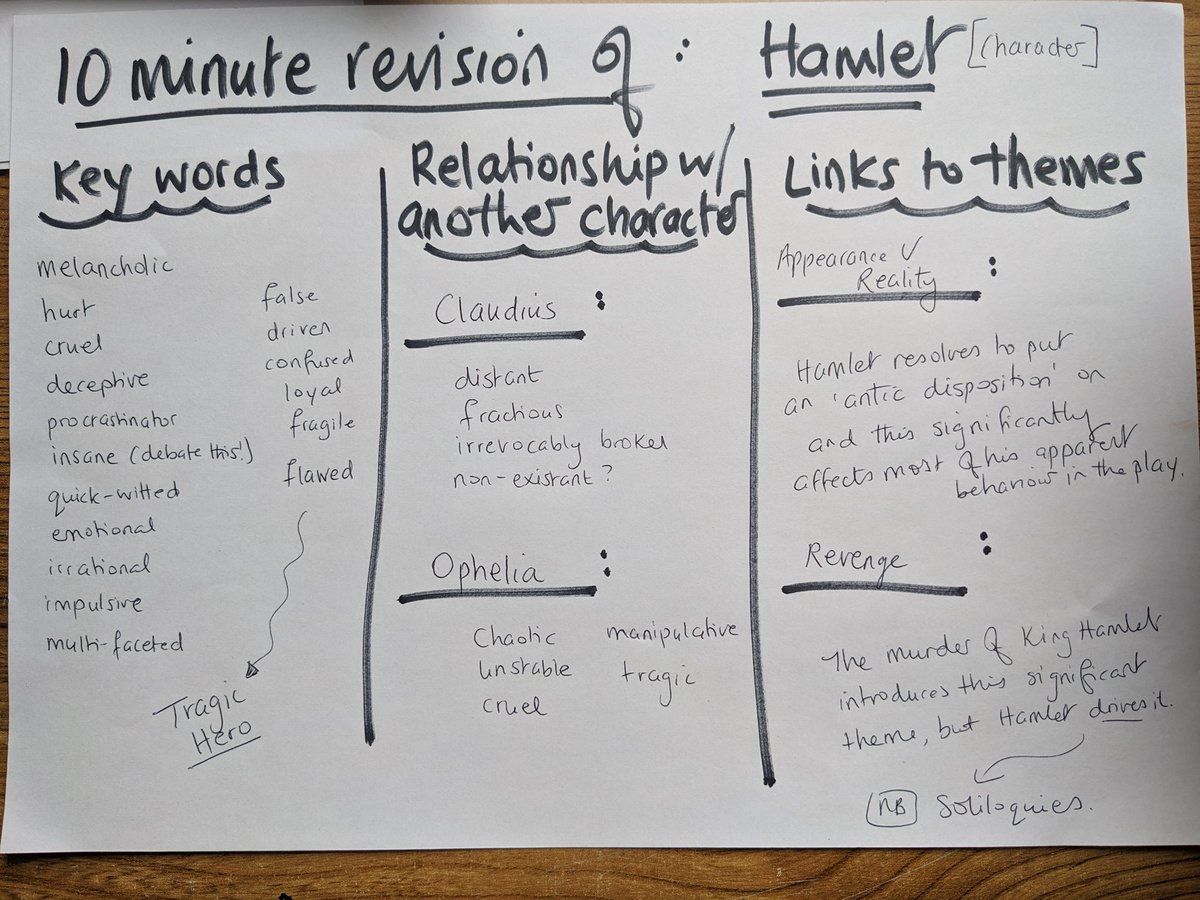 10 minute revision of : Hamlet [character]
Key words
melancholic
hurt
cruel
deceptive
procrastinator
insane (debate this!)
quick-witted
emotional
irrational
impulsive
multi-faceted
false
driven
confused
loyal
fragile
flawed
Tragic
Hero
Relationship w/
another character
Claudius :
distant
fractious
irrevocably broken
non-existant?
Ophelia :
Chaotic
unstable
cruel
manipulative
tragic
Links to themes
Appearance V
Reality :
Hamlet resolves to put
an 'antic disposition' on
and this significantly
affects most of his apparent
behaviour in the play.
Revenge :
The murder of King Hamlet
introduces this significant
theme, but Hamlet drives it.
NB Soliloquies.